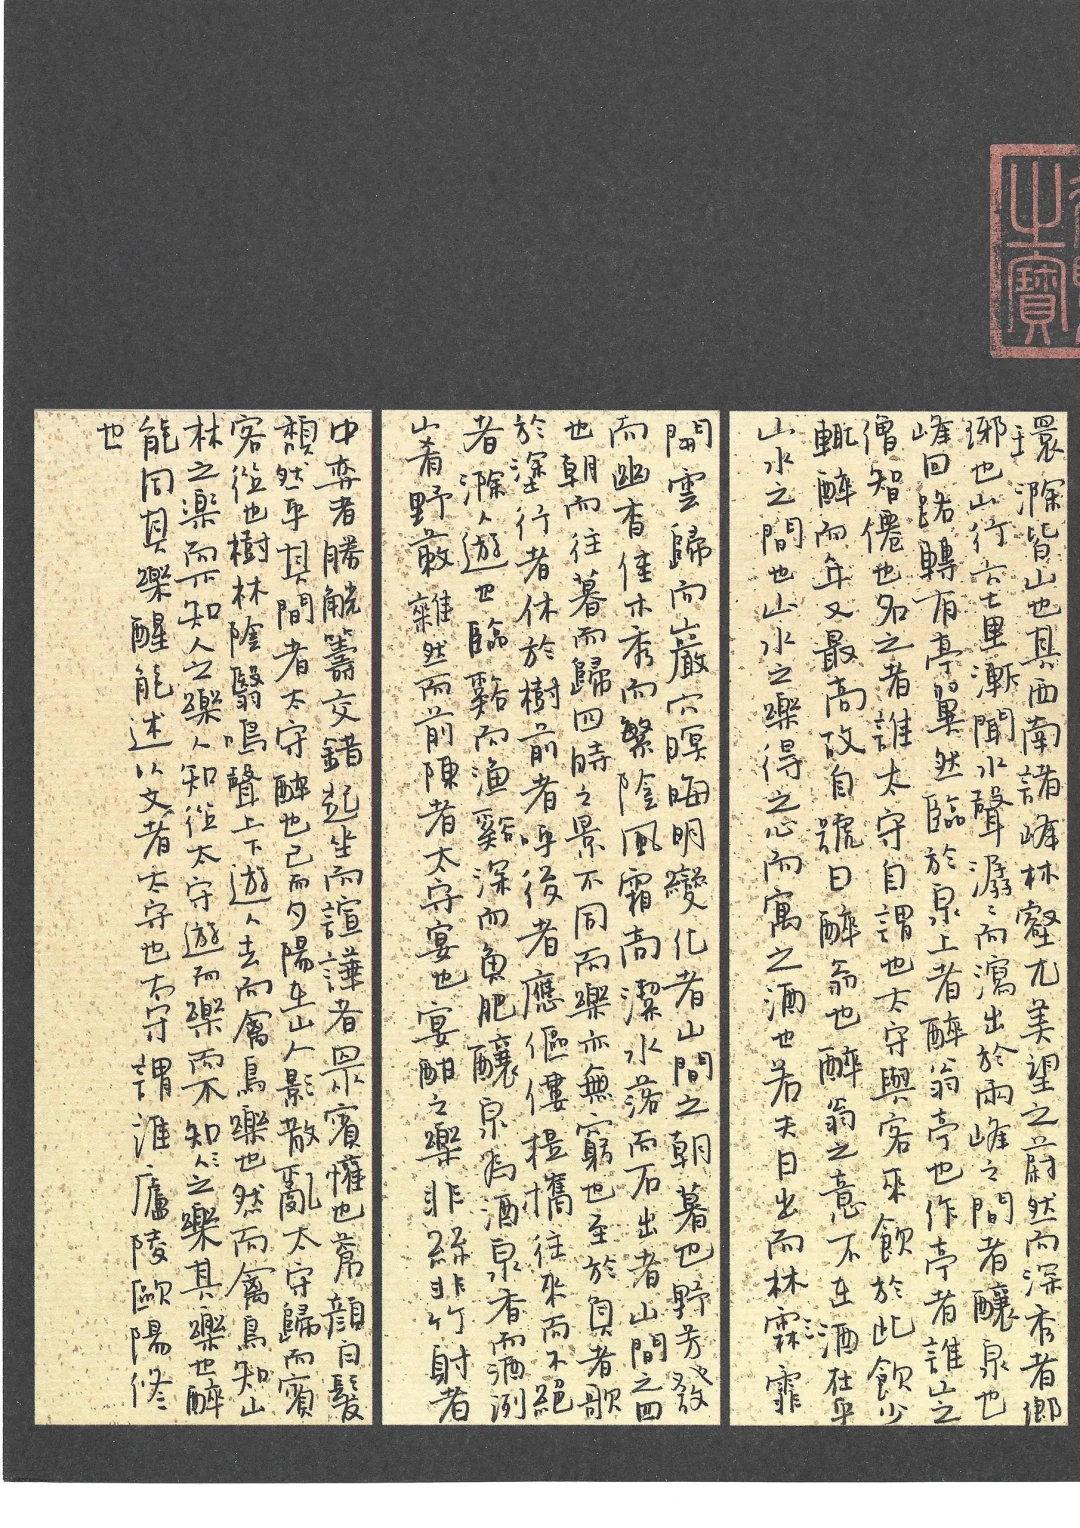 之寶
環滁皆山也其西南諸峰林壑尤美望之蔚然而深秀者瑯
琊也山行六七里漸聞水聲潺〻而瀉出於兩峰之間者釀泉也
峰回路轉有亭翼然臨於泉上者醉翁亭也作亭者誰山之
僧智僊也名之者誰太守自謂也太守與客來飲於此飲少
輒醉而年又最高故自號曰醉翁也醉翁之意不在酒在乎
山水之間也山水之樂得之心而寓之酒也若夫日出而林霖霏
開雲歸而巖穴暝晦明變化者山間之朝暮也野芳也發
而幽香佳木秀而繁陰風霜高潔水落而石出者山間之四
也朝而往暮而歸四時之景不同而樂亦無窮也至於負者歌
於塗行者休於樹前者呼後者應傴僂提攜往來而不絕
者滁人遊也臨谿而漁谿深而魚肥釀泉為酒泉香而酒洌
山肴野蔌雜然而前陳者太守宴也宴酣之樂非絲非竹射者
中弈者勝觥籌交錯起坐而諠譁者眾賓懽也蒼顏白髮
頹然乎其間者太守醉也已而夕陽在山人影散亂太守歸而賓
客從也樹林陰翳鳴聲上下遊人去而禽鳥樂也然而禽鳥知山
林之樂而不知人之樂人知從太守遊而樂而不知人之樂其樂也醉
能同其樂醒能述以文者太守也太守謂誰廬陵歐陽修
也